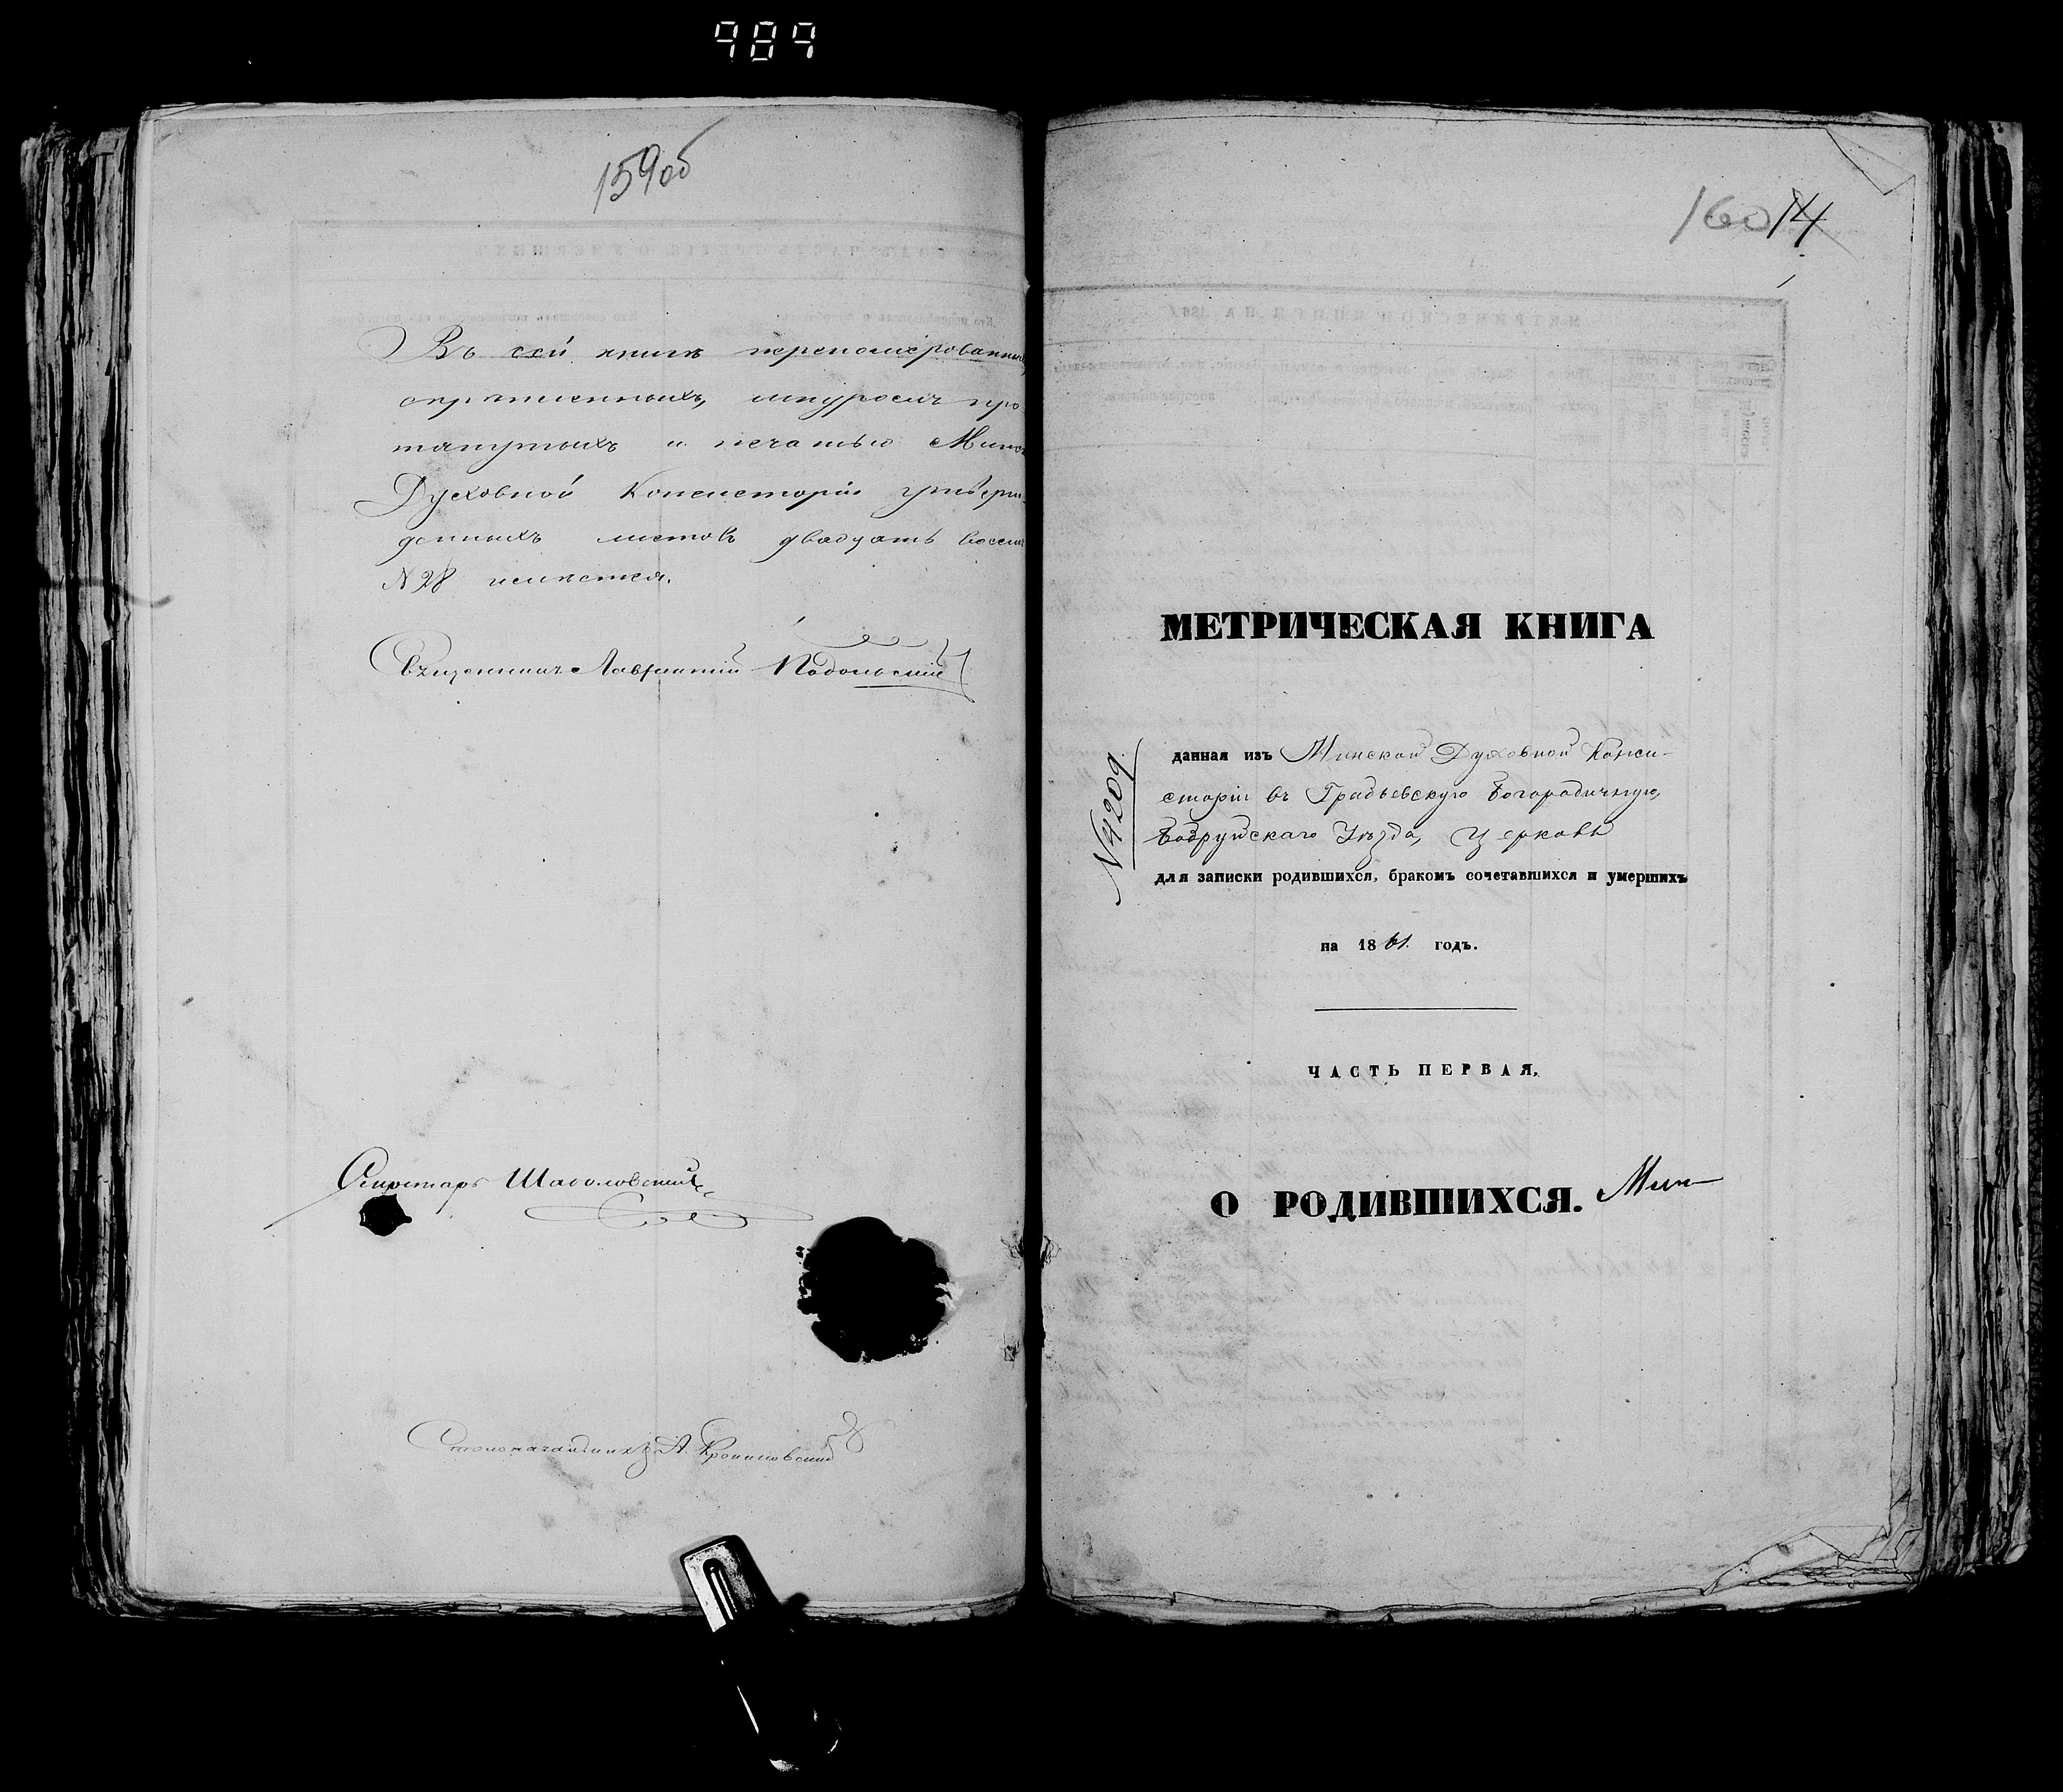 989
159об
Въ сей книгѣ переномерованныхъ
скрѣпленныхъ, шнуромъ про-
тянутыхъ и печатью Минс
Духовной Консисторіи утверж-
денныхъ листовъ двадцать восемь
N 28 числится.
Священникъ Лаврентій Подольскій
Секретарь
Столоначальникъ А.
160 14
МЕТРИЧЕСКАЯ КНИГА
N 4209
данная изъ Минской Духовной Конси-
сторіи въ Градьевскую Богородичную,
Бобруйскаго Уѣзда, Церковь
для записки родившихся, бракомъ сочетавшихся и умершихъ
на 1861. годъ.
ЧАСТЬ ПЕРВАЯ.
О РОДИВШИХСЯ. Мин